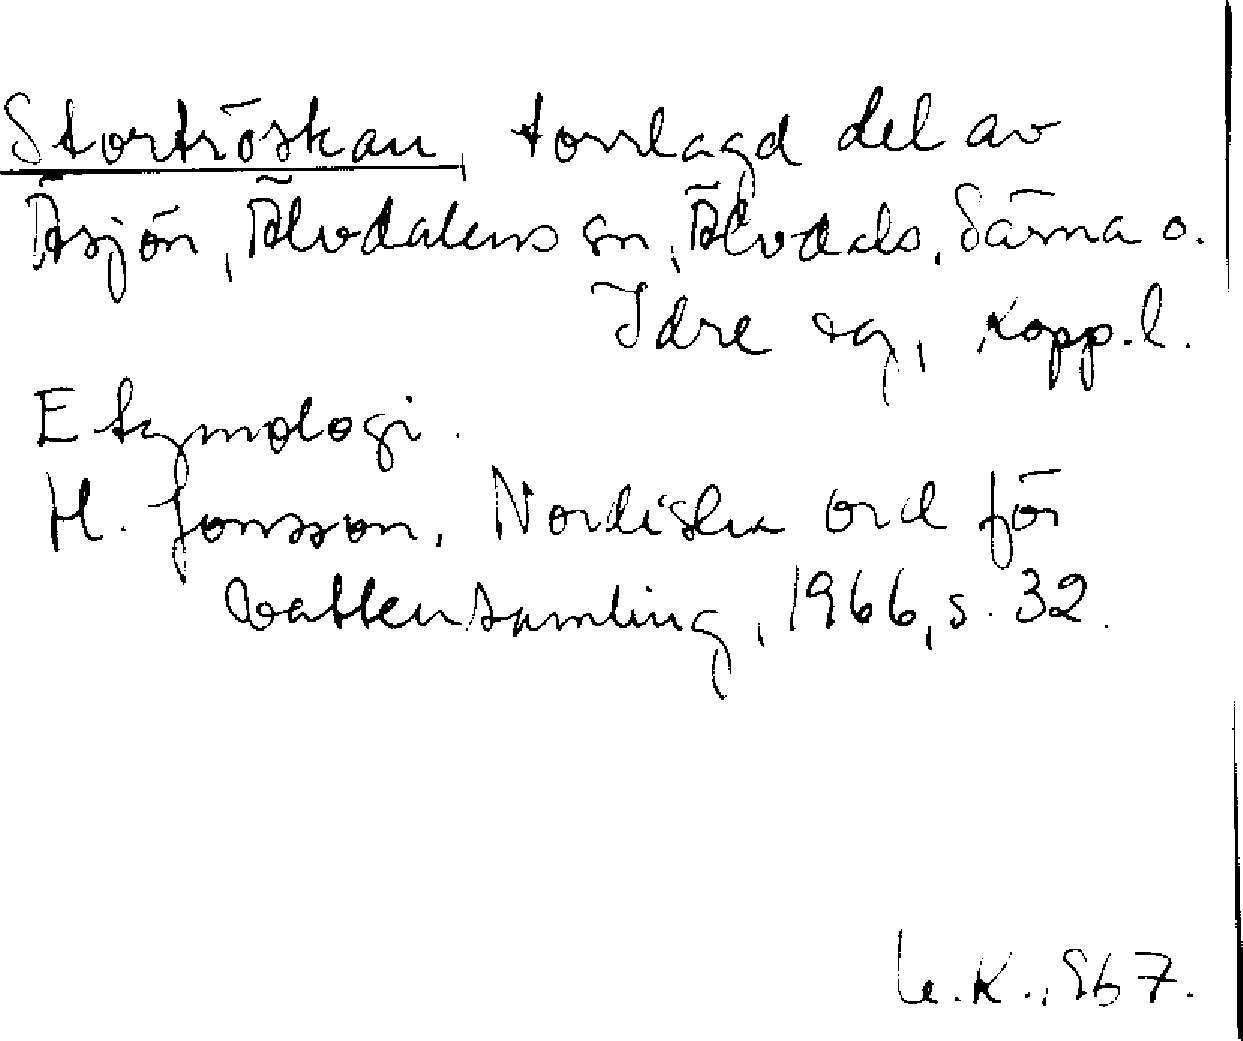 Stortröskan, torrlagd del av
Äsjön, Älvdalens sn, Älvdals, Särna o.
Idre tg, Kopp. l.
Etymologi.
H. Jonsson, Nordiska ord för
vattensamling, 1966, s. 32.